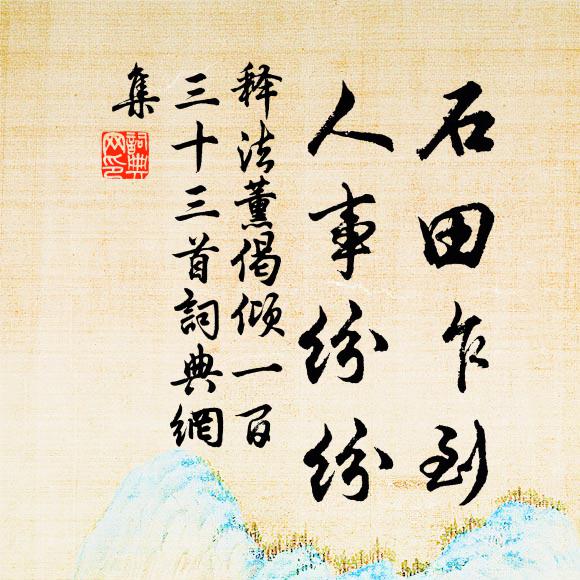 石田乍到
人事纷纷
释法薰偈倾一百
三十三首詞典網
集
詞典網印